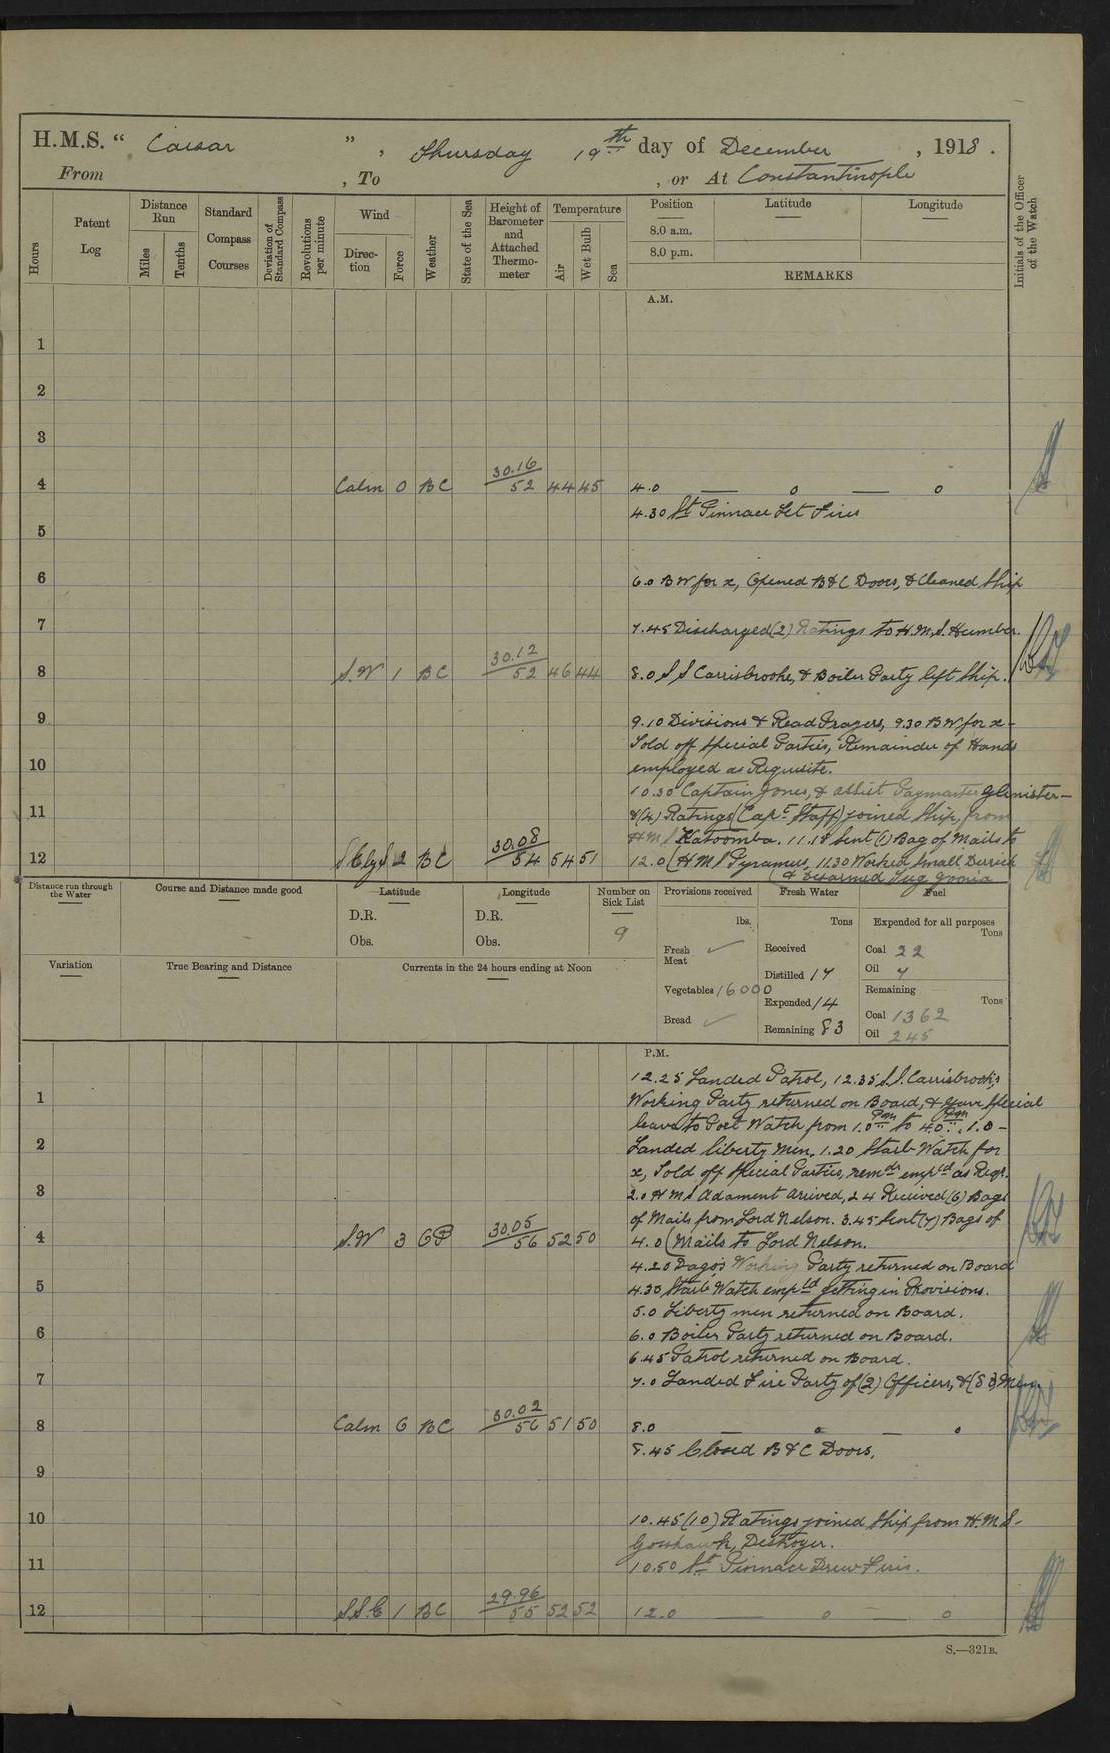 H.M.S. “ Caesar ” , Thursday 19th day of December , 1918 .
From , To , or At Constantinople
Hours
Patent Log
Distance Run
Miles
Tenths
Standard Compass Courses
Deviation of Standard Compass
Revolutions per minute
Wind
Direction
Force
Weather
State of the Sea
Height of Barometer and Attached Thermometer
Temperature
Air
Wet Bulb
Sea
Position
Latitude
Longitude
8.0 a.m.
8.0 p.m.
REMARKS
Initials of the Officer of the Watch
A.M.
1
2
3
4 Calm 0 BC 30.16 52 44 45 4.0 — o — o
4.30 St Pinnace Lit Fires
5
6 6.0 BW for x, Opened B&C Doors, & Cleaned Ship
7 7.45 Discharged (2) Ratings to H.M.S. Humber.
8 S.W 1 BC 30.12 52 46 44 8.0 S S Carrisbrooke, & Boiler Party left Ship.
9 9.10 Divisions & Read Prayers, 9.30 BW for x –
Told off Special Parties, Remainder of Hands
10 employed as Requisite.
10.30 Captain Jones, & assist Paymaster Glenister –
11 & (4) Ratings (Capt Staff) joined Ship, from
H M S Katoomba. 11.18 Sent (1) Bag of Mails to
12 2 BC 30.08 54 54 51 12.0 (H M S Pyramus, 11.30 Worked Small Derrick
& Disarmed Tug
Distance run through the Water
Course and Distance made good
Latitude
D.R.
Obs.
Longitude
D.R.
Obs.
Number on Sick List
9
Provisions received
lbs.
Fresh Meat ✓
Vegetables 16000
Bread ✓
Fresh Water
Tons
Received
Distilled 17
Expended 14
Remaining 83
Fuel
Expended for all purposes
Tons
Coal 22
Oil 7
Remaining
Tons
Coal 1362
Oil 245
Variation
True Bearing and Distance
Currents in the 24 hours ending at Noon
P.M.
12.25 Landed Patrol, 12.35 S.S. Carrisbrooks
1 Working Party returned on Board, & Gave Special
leave to Port Watch from 1.0 pm to 4.0 pm. 1.0 –
2 Landed liberty men. 1.20 Starb Watch for
x, Told off Special Parties, remdr empld as Reqr.
3 2.0 H M S Adament arrived, 2 4 Received (6) Bags
of Mails from Lord Nelson. 3.45 Sent (7) Bags of
4 S.W 3 30.05 56 52 50 4.0 (Mails to Lord Nelson.
4.20 Dago's Working Party returned on Board
5 4.30 Starb Watch empld getting in Provisions.
5.0 Liberty men returned on Board.
6 6.0 Boiler Party returned on Board.
6.45 Patrol returned on Board.
7 7.0 Landed Fire Party of (2) Officers, & Men.
8 Calm 0 BC 30.02 56 51 50 8.0 — o — o
8.45 Closed B & C Doors,
9
10 10.45 (10) Ratings joined Ship from H.M.S –
Goshawk, Destroyer.
11 10.50 St Pinnace Drew Fires.
12 S.S.E 1 BC 29.96 55 52 52 12.0 — o — o
S.—321B.